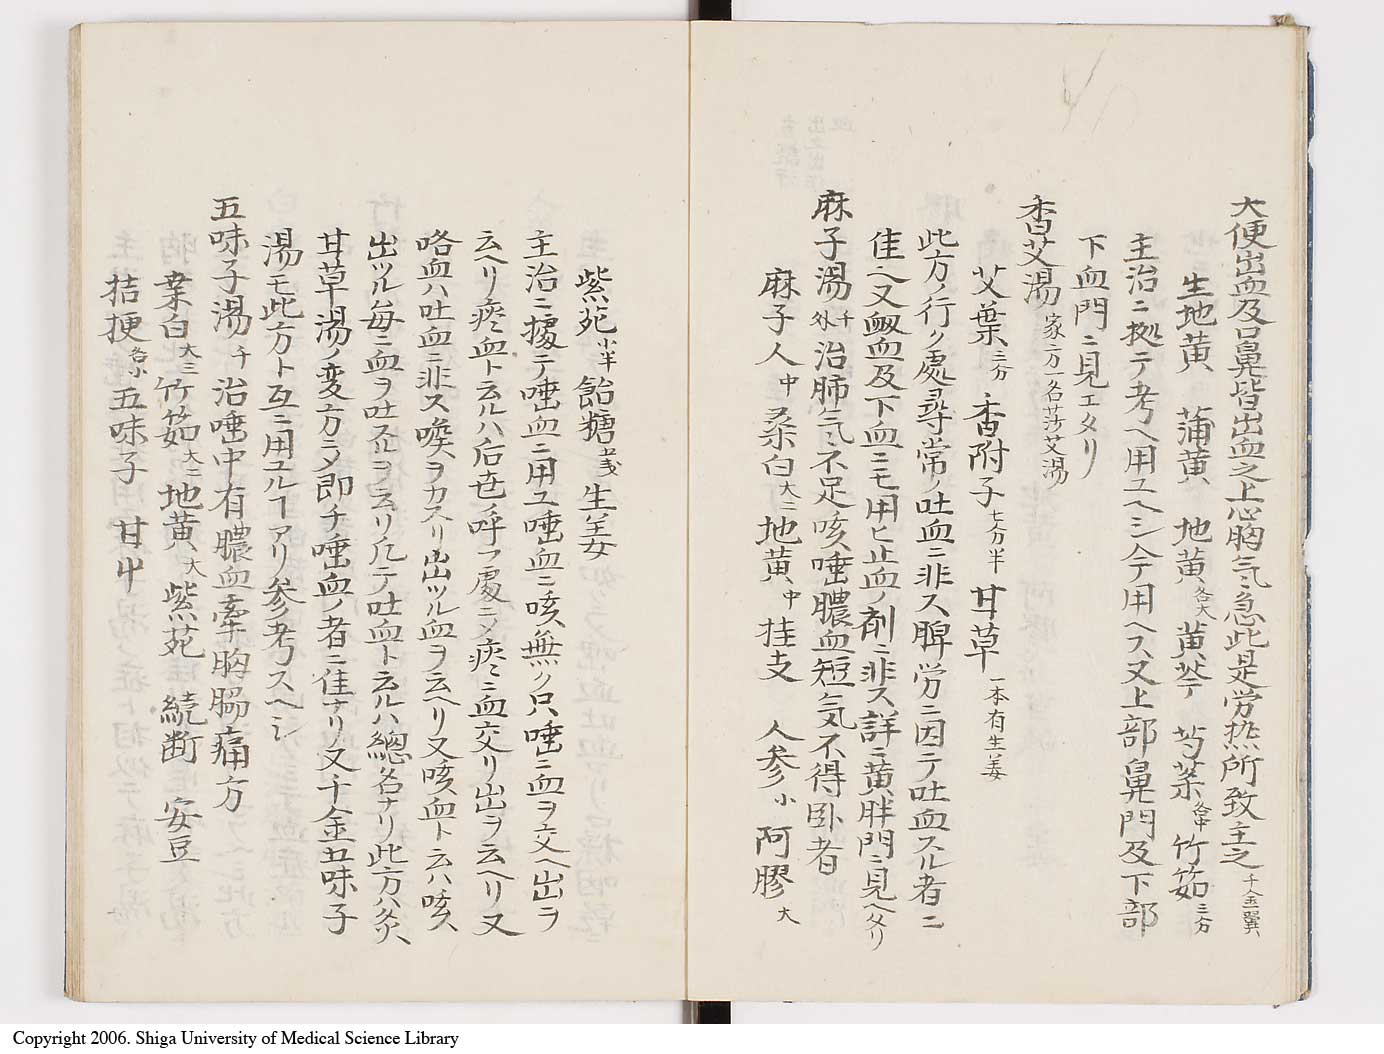 大便出血及口鼻皆出血之上心胸気急此是労熱所致主之千金翼
生地黄 蒲黄 地黄各大 黄芩 芍薬各中 竹茹三分
主治ニ拠テ考ヘ用ユヘシ今テ用ヘス又上部鼻門及下部
下血門ニ見エタリ
香艾湯家方一名莎艾湯
艾葉三分 香附子七分半 甘草一本有生姜
此方ノ行ク處尋常ノ吐血ニ非ス脾労ニ因テ吐血スル者ニ
佳ヘ又衂血及下血ニモ用ヒ止血ノ剤ニ非ス詳ニ黄胖門ニ見ヘタリ
麻子湯千外治肺気不足咳唾膿血短気不得卧者
麻子人中桑白大二地黄中桂支 人参小阿膠大
紫苑小半飴糖五戋生姜
主治ニ據テ唾血ニ用ユ唾血ニ咳無ク只唾ニ血ヲ交ヘ出ヲ
云ヘリ痰血ト云ルハ后世呼フ處ニメ痰ニ血交リ出ヲ云ヘリ又
咯血ハ吐血ニ非ス喉ヲカスリ出ツル血ヲ云ヘリ又咳血ト云ハ咳
出ツル毎ニ血ヲ吐ス症ヲ云リ凡テ吐血ト云ルハ總名ナリ此方ハ灸
甘草湯ノ変方ニメ即チ唾血ノ者ニ佳ナリ又千金五味子
湯モ此方ト互ニ用ユルヿアリ参考スヘシ
五味子湯千治唾中有膿血牽胸脇痛方
桒白大三竹茹大二地黄大紫苑 続断 安豆
桔梗各小五味子 甘屮